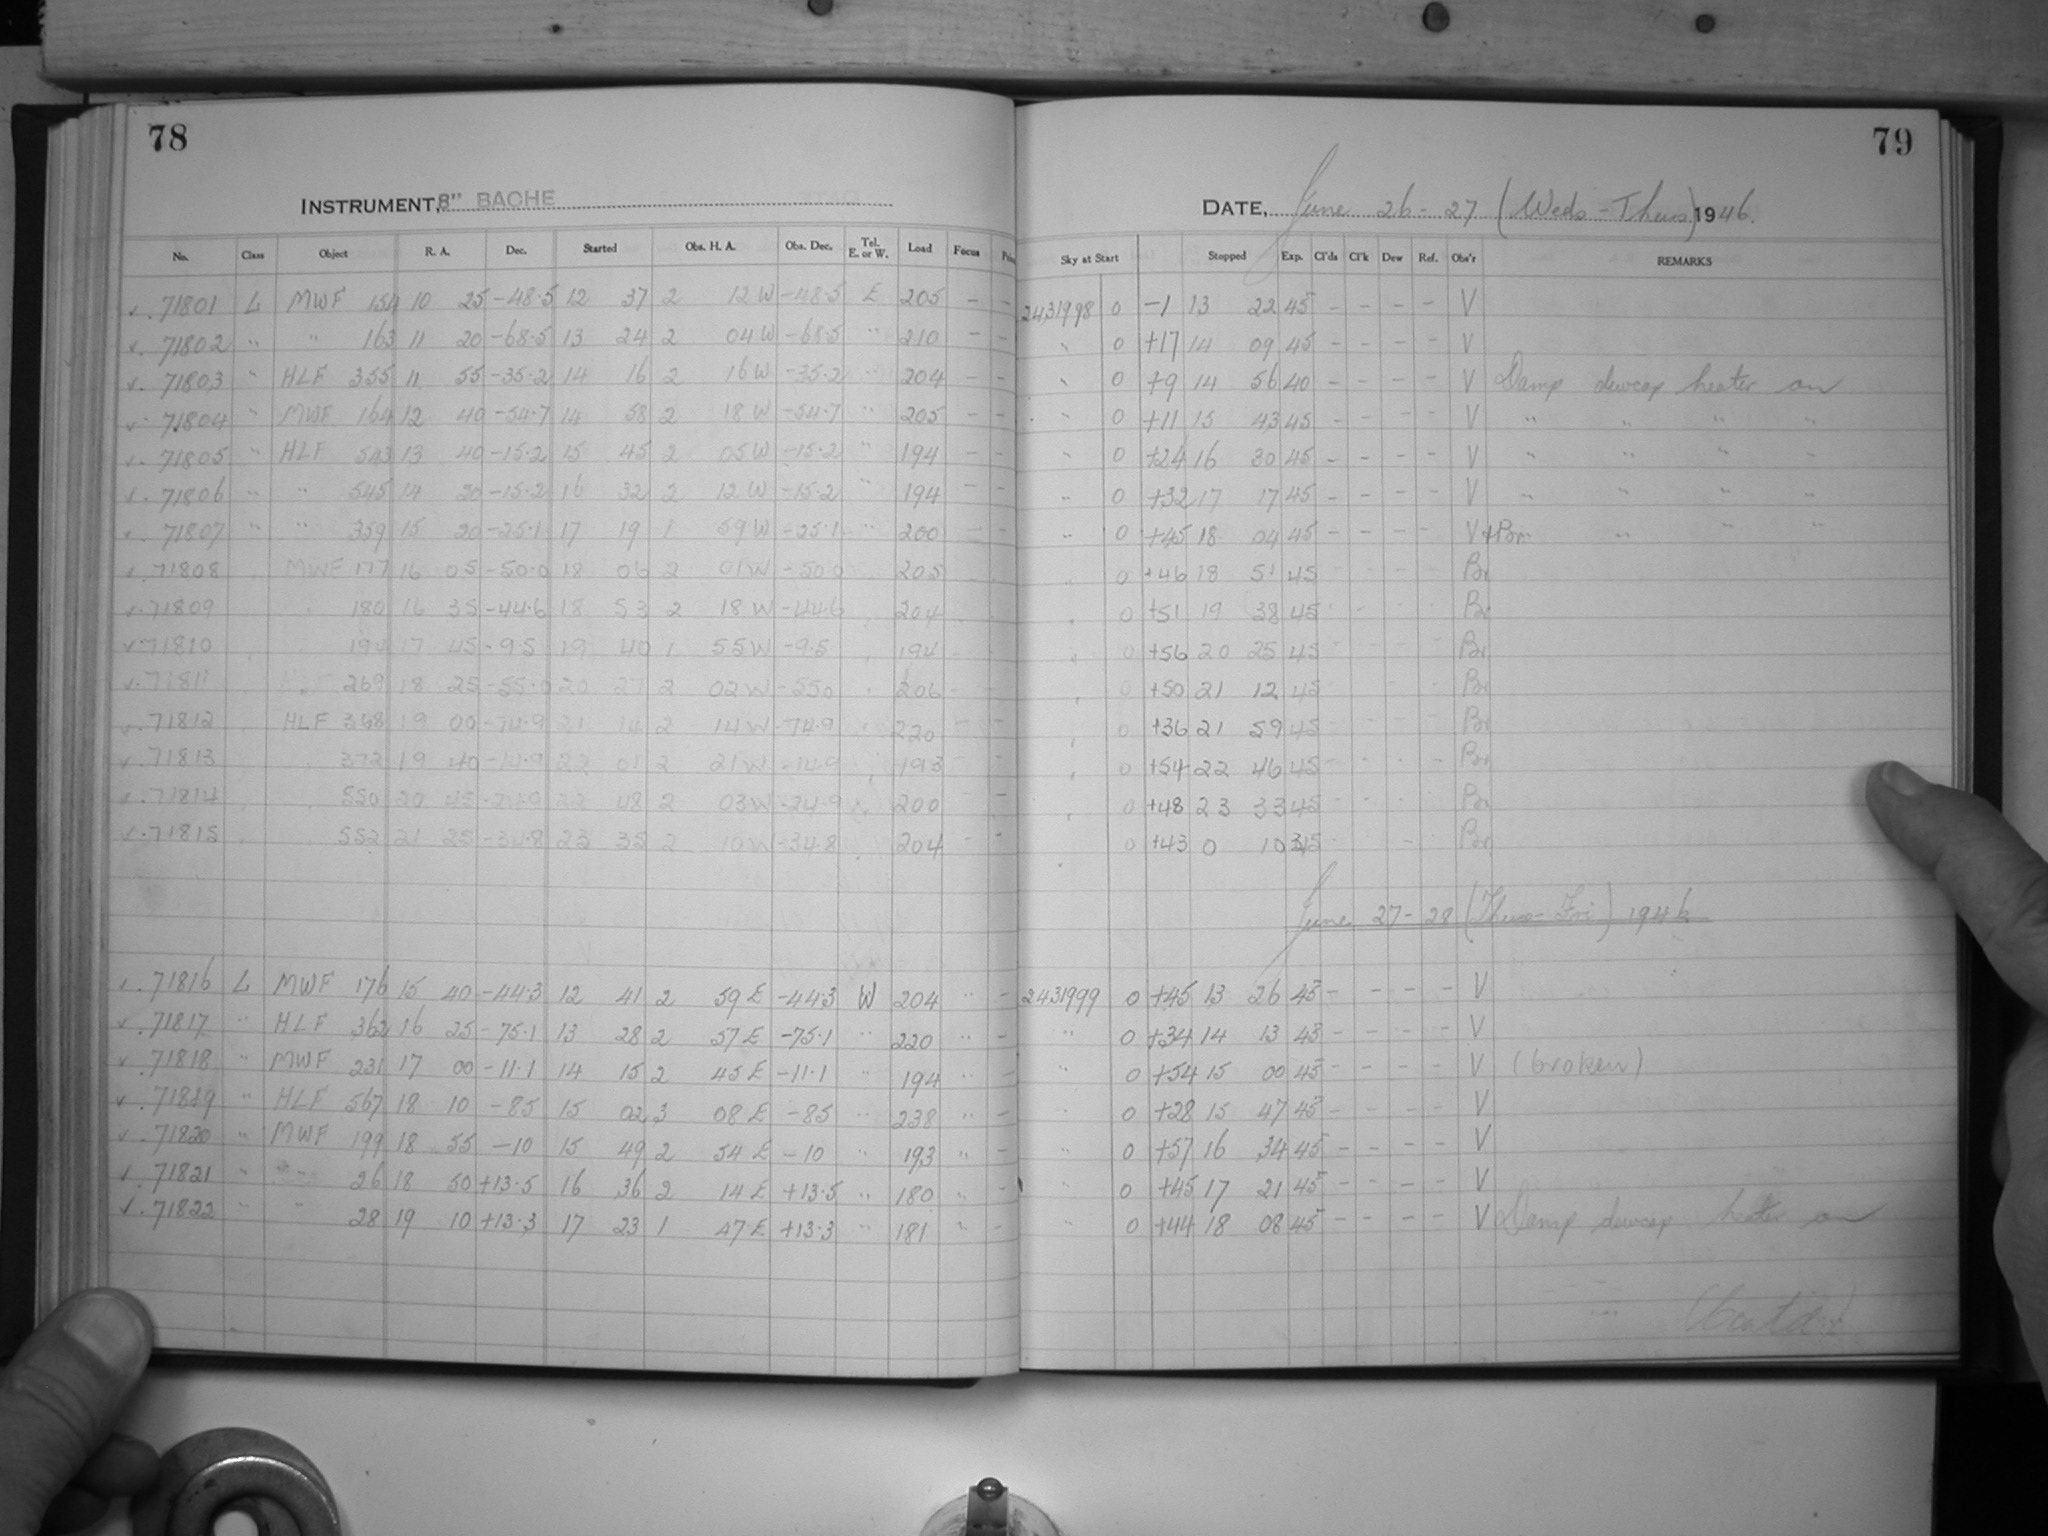 78
79
INSTRUMENT, 8" BACHE
DATE, June 26 - 27 (Weds - Thurs) 1946.
No. Class Object R. A. Dec. Started Obs. H. A. Obs. Dec. Tel. E. or W. Load Focus Sky at Start Stopped Exp. Cl'ds Cl'k Dew Ref. Obs'r REMARKS
v. 71801 L MWF 154 10 25 -48.5 12 37 2 12 W -48.5 E 205 - - 2431998 0 -1 13 22 45 - - - - V
v. 71802 " " 163 11 20 -68.5 13 24 2 04 W -68.5 " 210 - - " 0 +17 14 09 45 - - - - V
v. 71803 " HLF 355 11 55 -35.2 14 16 2 16 W -35.2 " 204 - - " 0 +9 14 56 40 - - - - V Damp dewcap heater on
v. 71804 " MWF 164 12 40 -54.7 14 58 2 18 W -54.7 " 205 - - " 0 +11 15 43 45 - - - - V " " " "
v. 71805 " HLF 543 13 40 -15.2 15 45 2 05 W -15.2 " 194 - - " 0 +24 16 30 45 - - - - V " " " "
v. 71806 " " 545 14 20 -15.2 16 32 2 12 W -15.2 " 194 - - " 0 +32 17 17 45 - - - - V " " " "
v. 71807 " " 359 15 20 -25.1 17 19 1 59 W -25.1 " 200 - - " 0 +45 18 04 45 - - - - V + Br " " "
v. 71808 MWF 177 16 05 -50.0 18 06 2 01 W -50.0 " 205 " 0 +46 18 51 45 Br
v. 71809 " 180 16 35 -44.6 18 53 2 18 W -44.6 " 204 " 0 +51 19 38 45 - - - - Br
v. 71810 " 194 17 45 -9.5 19 40 1 55 W -9.5 " 194 - " 0 +56 20 25 45 - - - - Br
v. 71811 " 269 18 25 -55.0 20 27 2 02 W -55.0 " 206 - - " 0 +50 21 12 45 - - - Br
v. 71812 HLF 368 19 00 -74.9 21 14 2 14 W -74.9 " 220 - - " 0 +36 21 59 45 - - - - Br
v. 71813 " 372 19 40 -14.9 22 01 2 21 W -14.9 " 193 - - " 0 +54 22 46 45 - - - - Br
v. 71814 " 550 20 45 -24.9 22 48 2 03 W -24.9 " 200 - - " 0 +48 23 33 45 - - - - Br
v. 71815 " 552 21 25 -34.8 23 35 2 10 W -34.8 " 204 - - " 0 +43 0 10 35 - - - Br
June 27 - 28 (Thurs - Fri) 1946
v. 71816 L MWF 176 15 40 -44.3 12 41 2 59 E -44.3 W 204 " - 2431999 0 +45 13 26 45 - - - - V
v. 71817 " HLF 362 16 25 -75.1 13 28 2 57 E -75.1 " 220 " - " 0 +34 14 13 45 - - - - V
v. 71818 " MWF 231 17 00 -11.1 14 15 2 45 E -11.1 " 194 " - " 0 +54 15 00 45 - - - - V (broken)
v. 71819 " HLF 567 18 10 -85 15 02 3 08 E -85 " 238 " - " 0 +28 15 47 45 - - - - V
v. 71820 " MWF 199 18 55 -10 15 49 2 54 E -10 " 193 " - " 0 +57 16 34 45 - - - - V
v. 71821 " " 26 18 50 +13.5 16 36 2 14 E +13.5 " 180 " - " 0 +45 17 21 45 - - - - V
v. 71822 " " 28 19 10 +13.3 17 23 1 47 E +13.3 " 181 " - " 0 +44 18 08 45 - - - - V Damp dewcap heater on